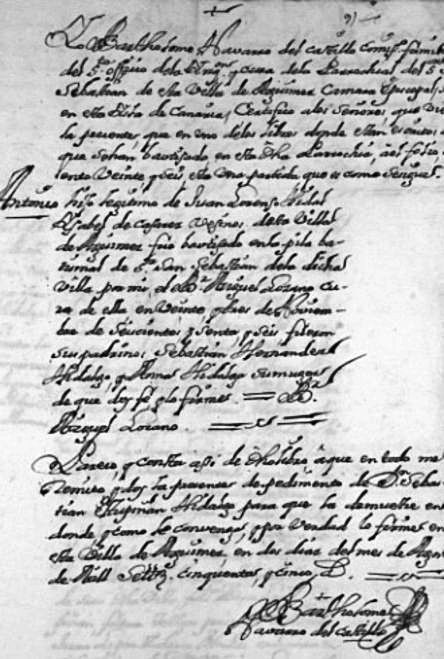 Dn Bartholome Navarro del Castillo comisso. famili
del Sto. officio dela Inqn. y cura dela Parrochial del Sr. Sn.
Sebastian de esta Villa de Aguimes Camara Episcopal
en esta Isla de Canaria, Certifico a los Señores que vie
la presente, que en uno delos libros donde estan escritos
que sehan bautisado en esta dha Parrochia, al folio
siento Veinte y seis esta una partida que es como se sigue.
Antonio hijo legitimo de Juan Lorenso Vidal
Ysabel de Casares Vesinos desta Villa
de Aguimes fue bautisado enla pila ba-
tismal de Sr. San Sebastian dela dicha
Villa por mi el Br. Miguel Lozano Cu-
ra de ella en Veinte y tres de Noviem-
bre de Seiscientos y senta y seis fueron
sus padrinos Sebastian Hernandes
Hidalgo, y Ana Hidalgo su muger
de que doy fe y lo firme = Br.
Miguel Lozano.
Paresce y consta asi de dho libro, a que en todo me
Remito, y doy la presente de pedimento de Dn. Sebas
tian Hidalgo para que la demuestre en
donde y como le convenga, y por Verdad lo firme en
esta Villa de Aguimes, en dos dias del mes de Agos
de Mill Settos. cinquenta y cinco
Dn Bartholome
Navarro del Castillo